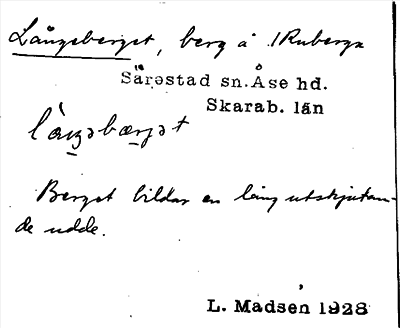 Långeberget, berg å /Ruberga
Särestad sn. Åse hd.
Skarab. län
Berget bildar en lång utskjutan-
de udde.
L. Madsen 1928